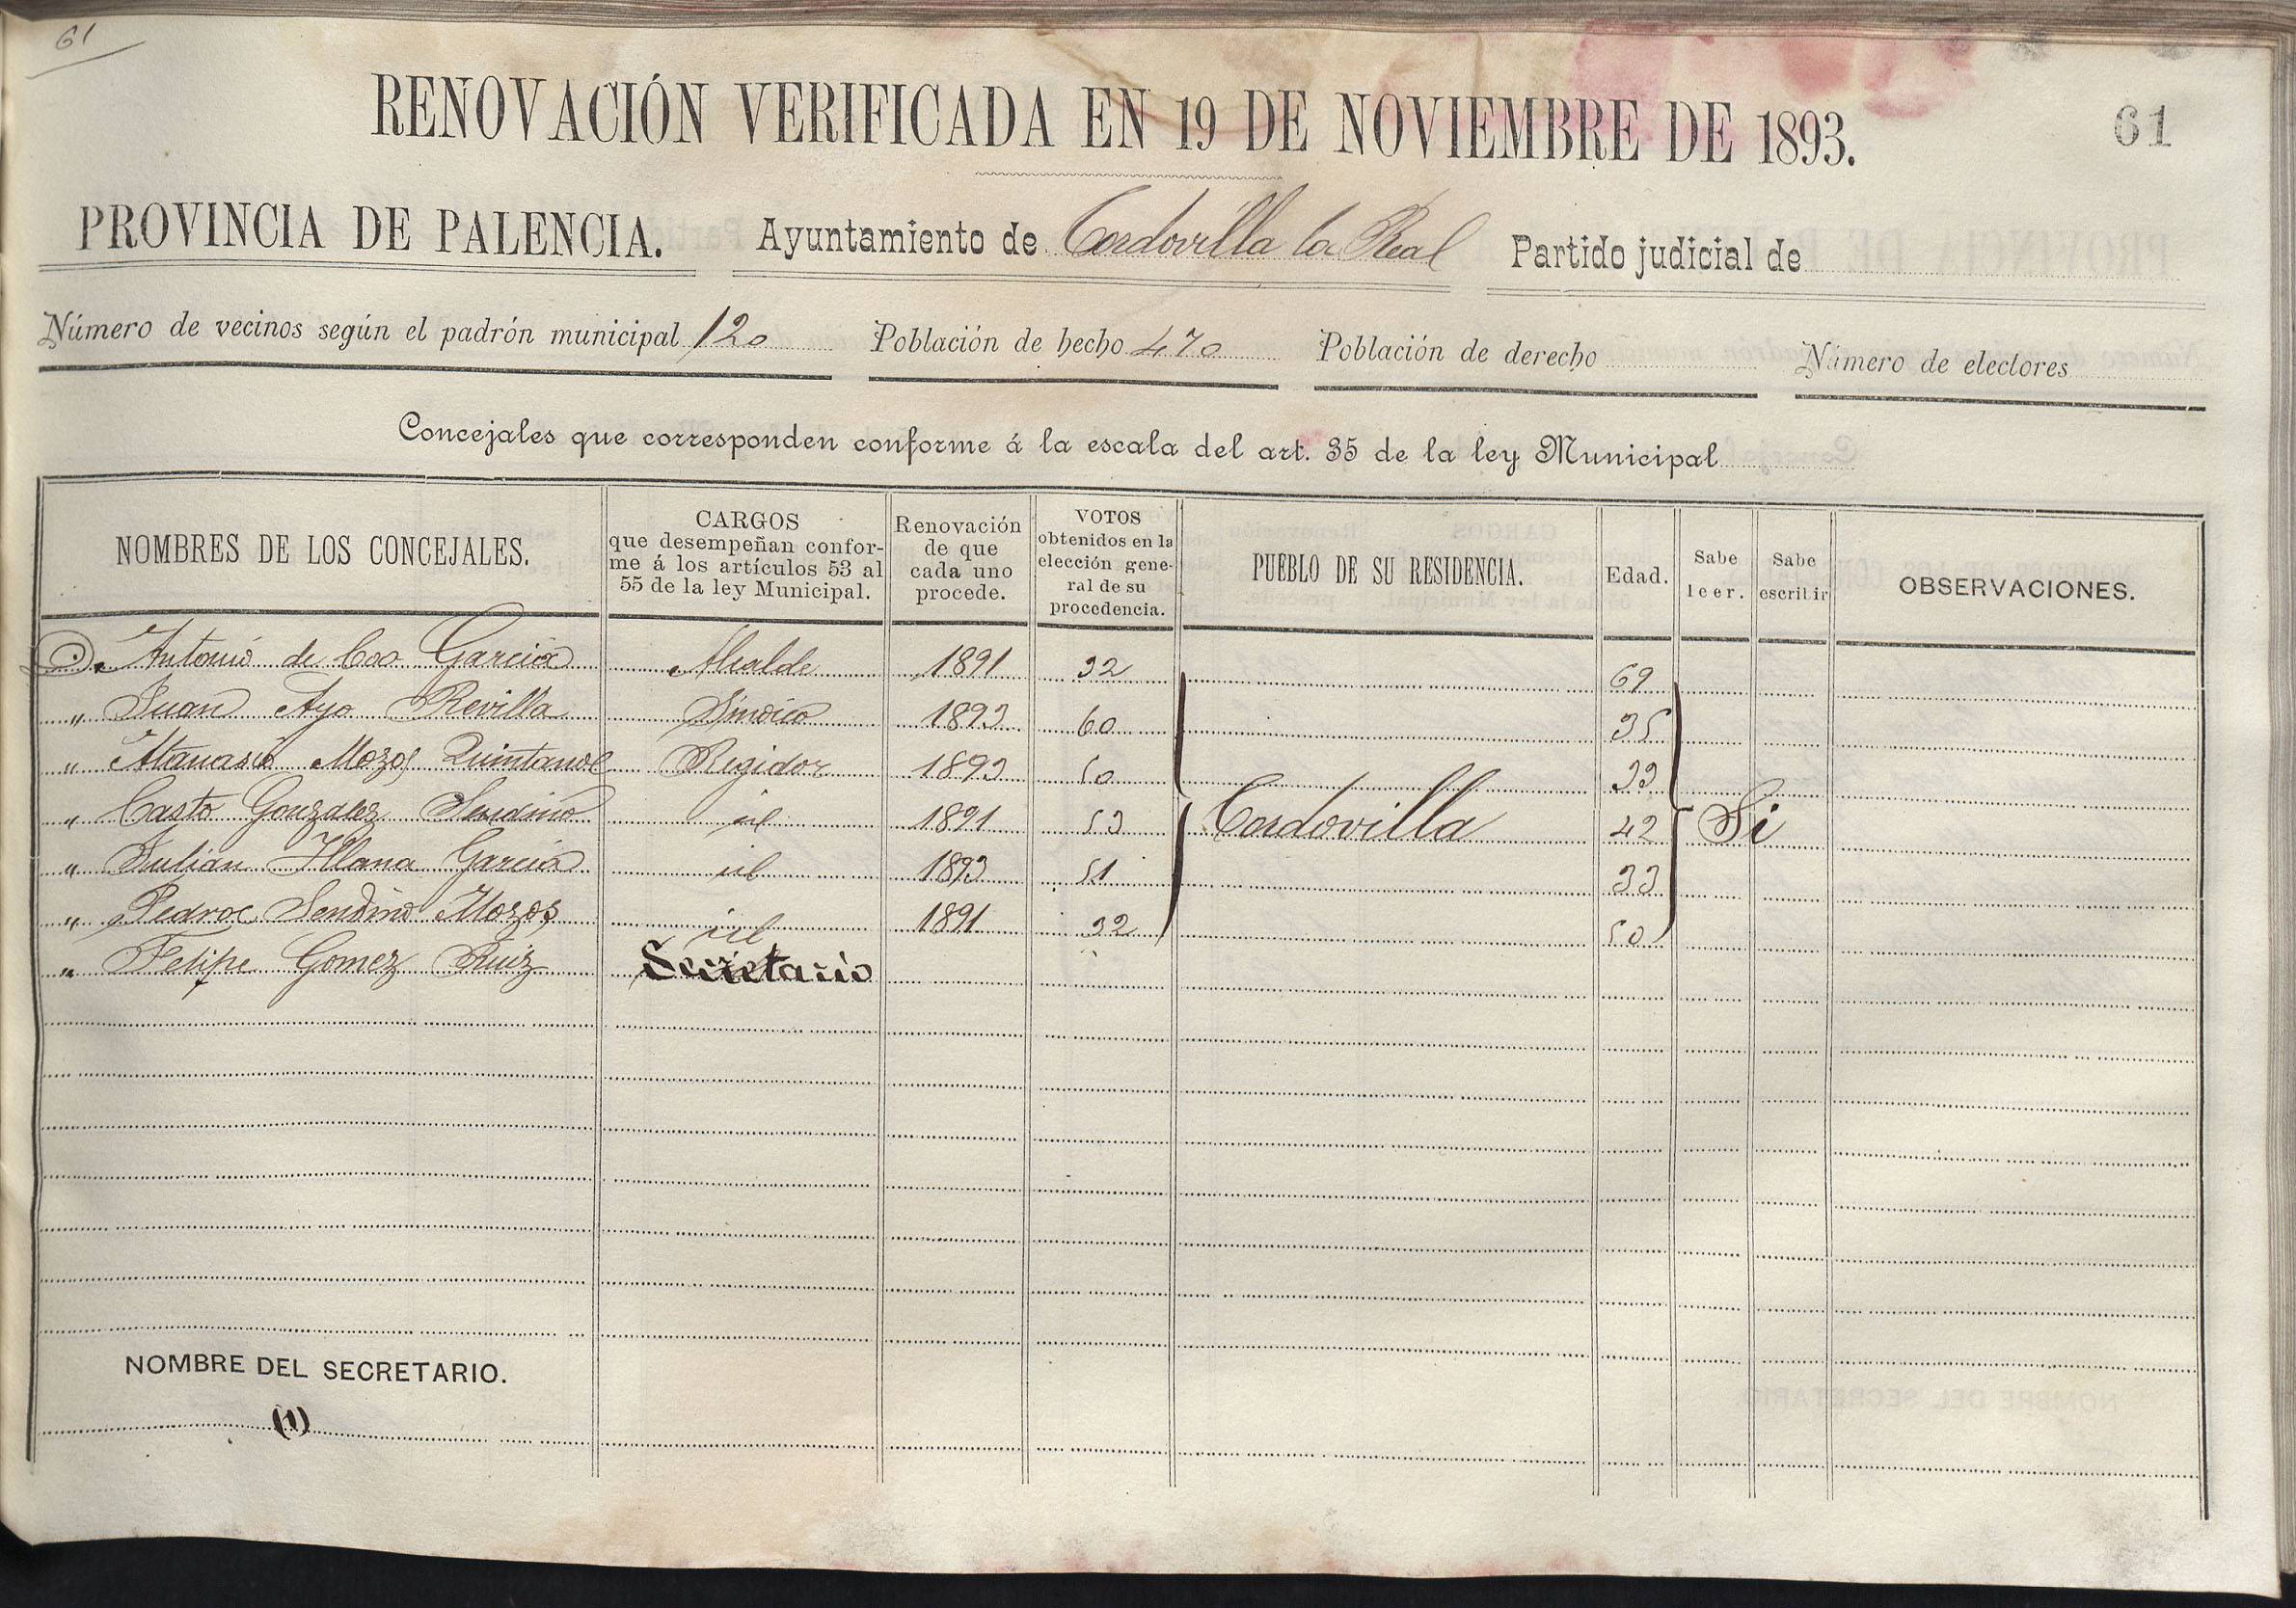 61
RENOVACIÓN VERIFICADA EN 19 DE NOVIEMBRE DE 1893.
61
PROVINCIA DE PALENCIA. Ayuntamiento de Cordovilla la Real Partido judicial de
Número de vecinos según el padrón municipal 120 Población de hecho 470 Población de derecho Número de electores
Concejales que corresponden conforme á la escala del art. 35 de la ley Municipal
NOMBRES DE LOS CONCEJALES.
CARGOS
que desempeñan confor-
me á los artículos 53 al
55 de la ley Municipal.
Renovación
de que
cada uno
procede.
VOTOS
obtenidos en la
elección gene-
ral de su
procedencia.
PUEBLO DE SU RESIDENCIA.
Edad.
Sabe
leer.
Sabe
escribir
OBSERVACIONES.
D. Antonio de Coo Garcia Alcalde 1891 32 69
" Juan Ayo Revilla Sindico 1893 60 35
" Atanasio Mozos Regidor 1893 50 33
" Casto Gonzalez Sendino id 1891 53 Cordovilla 42 Si
" Julian Illana Garcia id 1893 51 33
" Sendino Mozos id 1891 32 50
" Felipe Gomez Ruiz Secretario
NOMBRE DEL SECRETARIO.
(1)